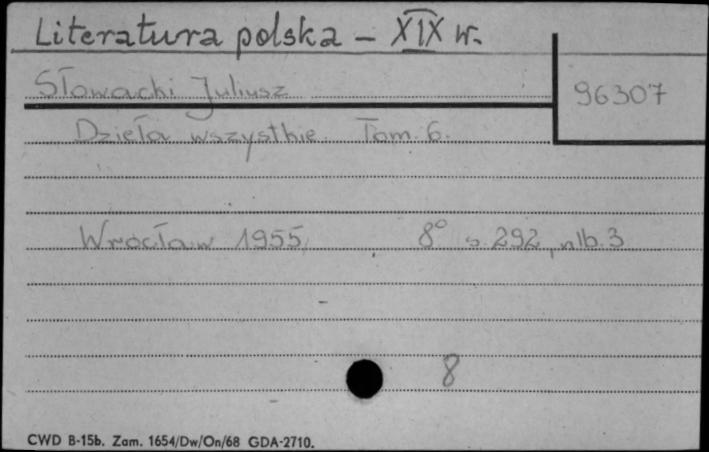 Literatura polska – XIX w.
Słowacki Juliusz
96307
Dzieła wszystkie. Tom. 6.
Wrocław 1955, 8° s. 292, nlb. 3
8
CWD B-15b. Zam. 1654/Dw/On/68 GDA-2710.